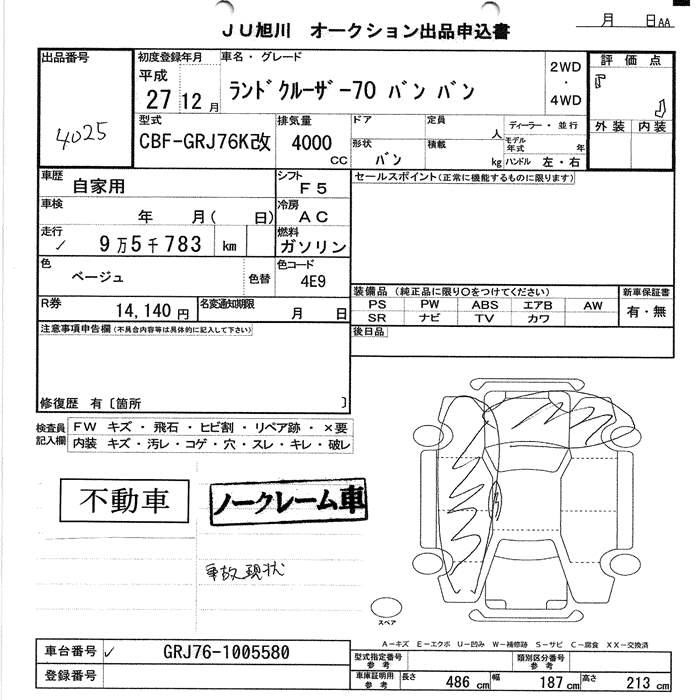 JU旭川 オークション出品申込書
月 日AA
出品番号
4025
初度登録年月
平成
27 12月
車名・グレード
ランドクルーザー70 バン バン
2WD
・
4WD
評価点
外装 内装
型式
CBF-GRJ76K改
排気量
4000
CC
ドア
定員
人
ディーラー・並行
形状
バン
積載
kg
モデル年式
年
ハンドル 左・右
車歴
自家用
シフト
F5
セールスポイント(正常に機能するものに限ります)
車検
年 月( 日)
冷房
AC
走行
✓ 9万5千783 km
燃料
ガソリン
色
ベージュ
色替
色コード
4E9
装備品 (純正品に限り〇をつけてください)
新車保証書
PS PW ABS エアB AW
SR ナビ TV カワ
有・無
R券
14,140円
名変通知期限
月 日
後日品
注意事項申告欄(不具合内容等は具体的に記入して下さい)
修復歴 有〔箇所 〕
検査員記入欄
FW キズ・飛石・ヒビ割・リペア跡・×要
内装 キズ・汚レ・コゲ・穴・スレ・キレ・破レ
不動車
ノークレーム車
事故現状
スペア
A-キズ E-エクボ U-凹み W-補修跡 S-サビ C-腐食 XX-交換済
車台番号 ✓ GRJ76-1005580
登録番号
型式指定番号
参考
類別区分番号
参考
車庫証明用
参考
長さ 486cm 幅 187cm 高さ 213cm